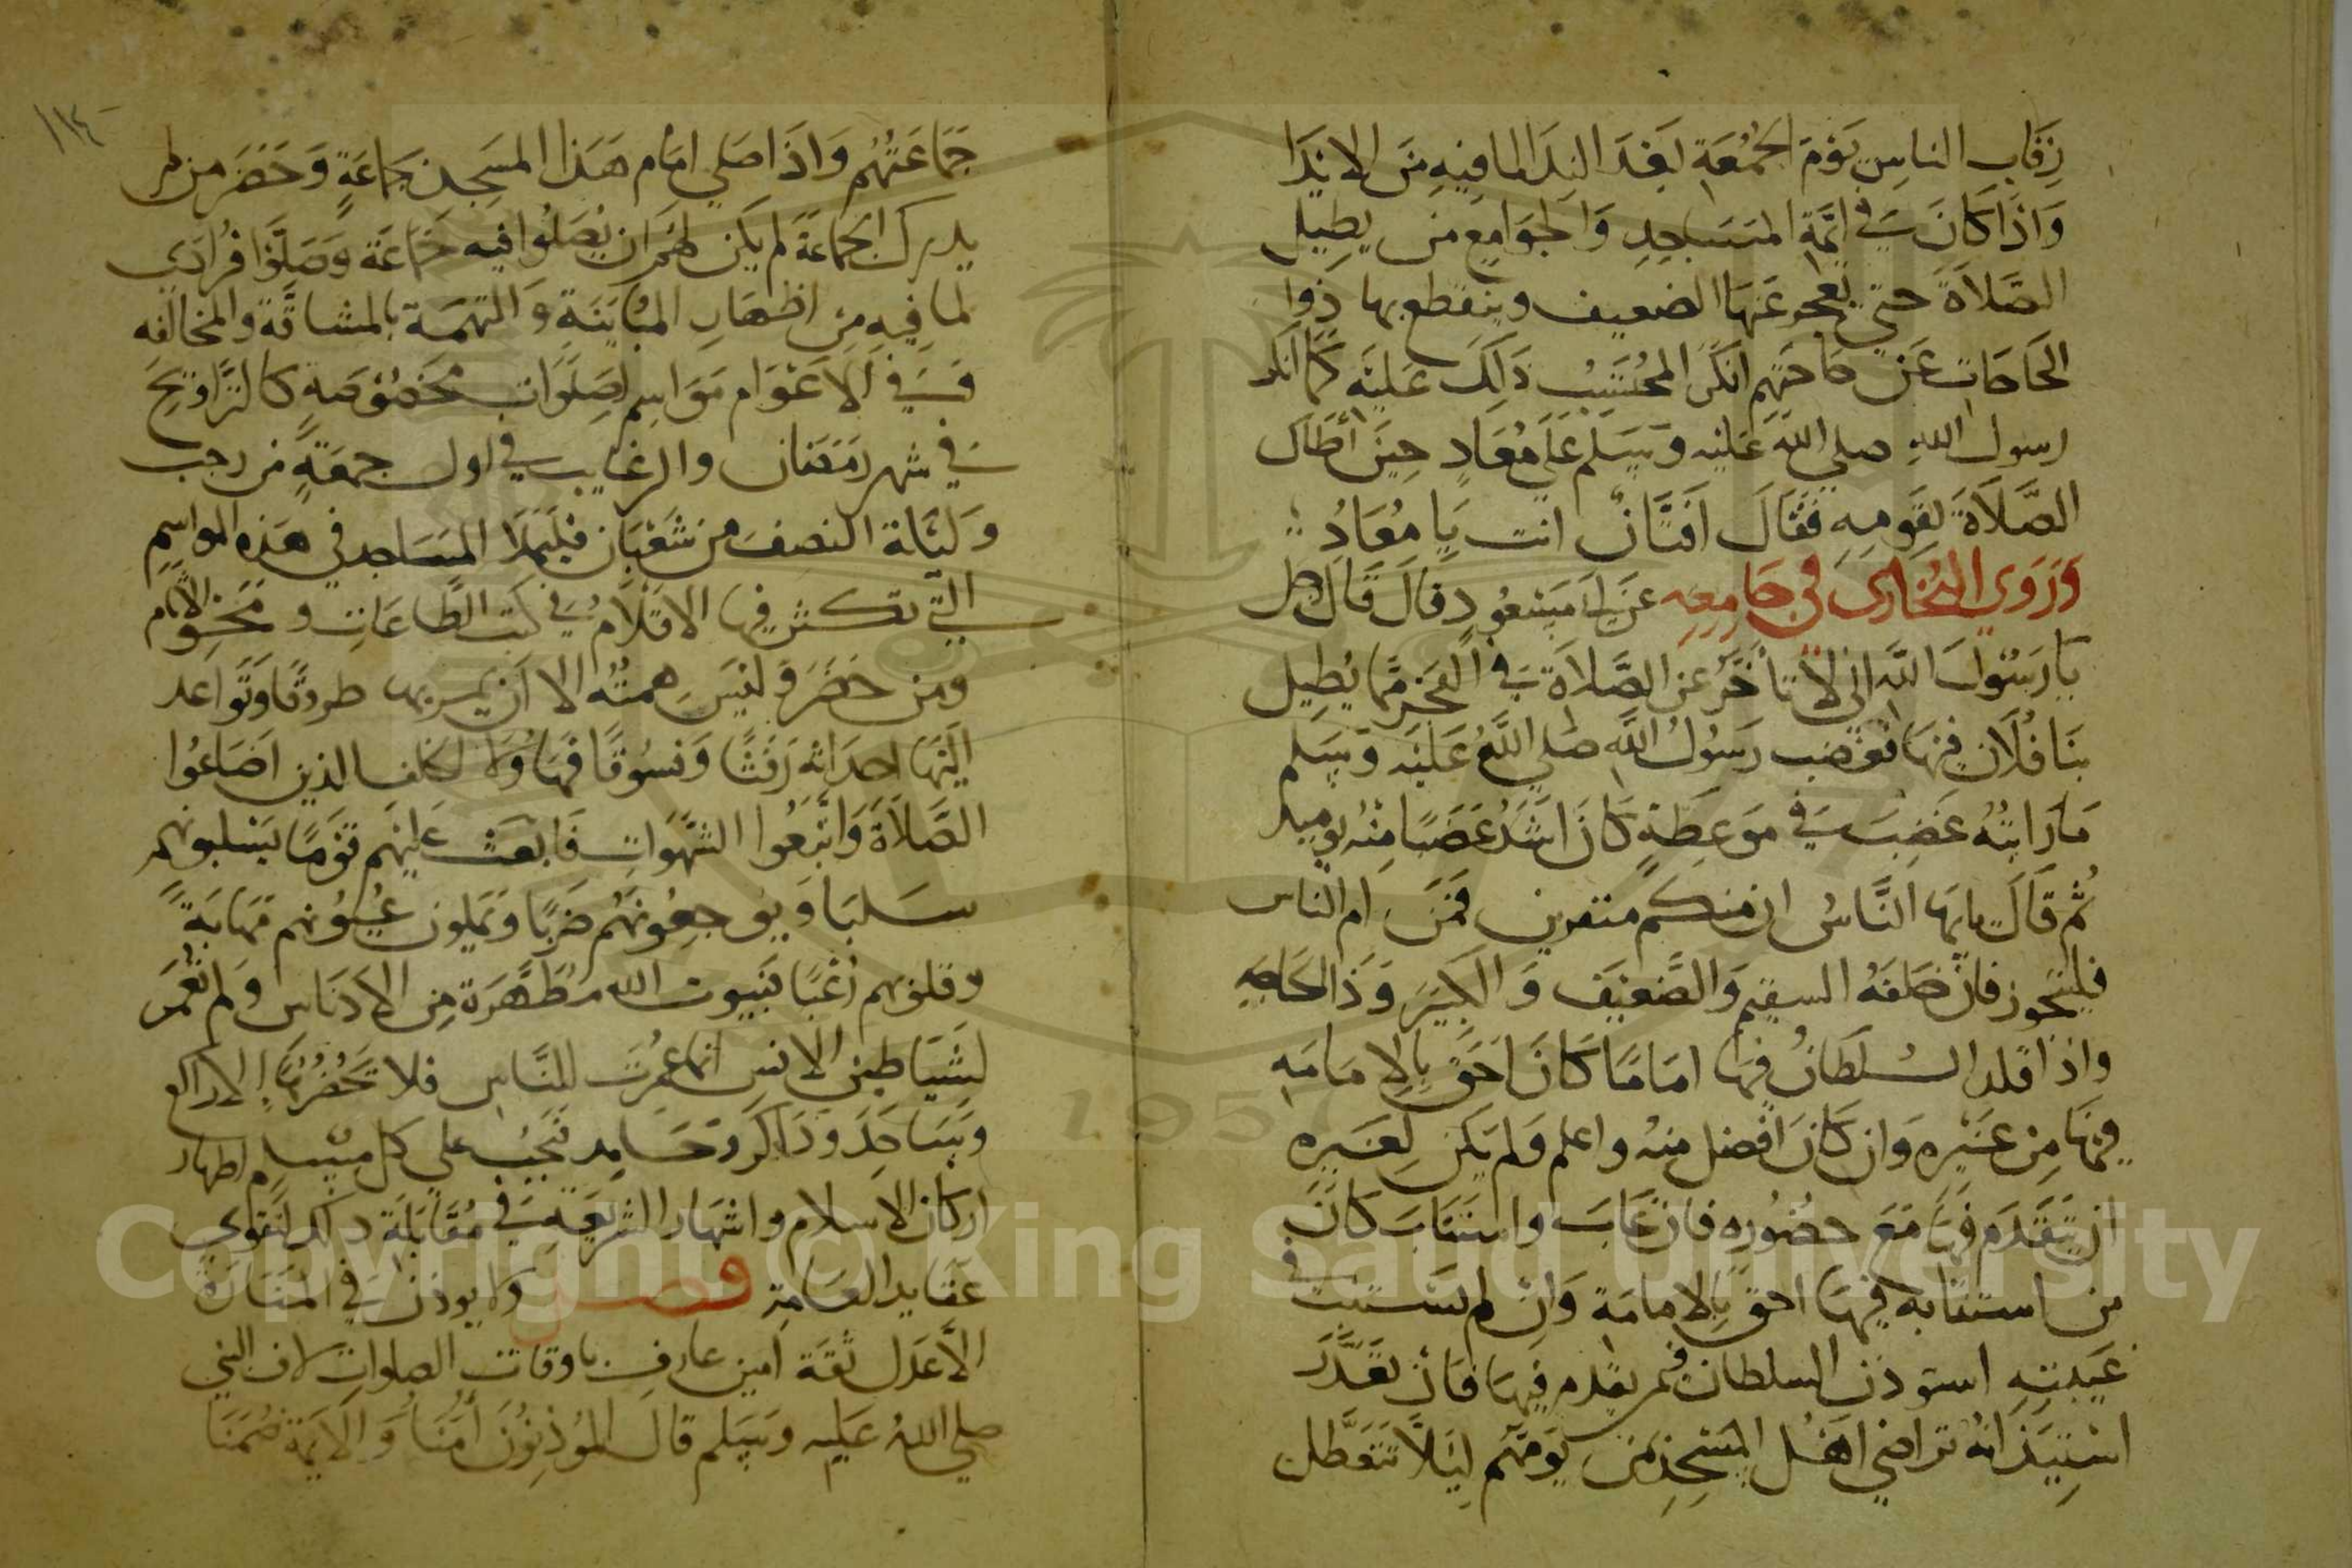 رقاب الناس يوم الجمعة بعد الندا لما فيه من الايذا
واذا كان في ائمة المساجد والجوامع من يطيل
الصلاة حتي يعجز عنها الضعيف وينقطع بها ذوا
الحاجات عن حاجتهم انكر المحتسب ذلك عليه كما انكر
رسول الله صلي الله عليه وسلم علي معاذ حين أطال
الصلاة لقومه فقال افتان انت يا معاذ
وروي البخاري في جامعه عن ابي مسعود قال قال رجل
يا رسول الله اني لا تأخر عن الصلاة في الفجر مما يطيل
بنا فلان فيها فغضب رسول الله صلي الله عليه وسلم
ما رايته غضب في موعظة كان اشد غضبا منه يوميذ
ثم قال يايها الناس ان منكم منفرين فمن ام الناس
فليتجوز فان خلفه السقيم والضعيف والكبير وذا الحاجه
واذا قلد السلطان فيها اماما كان احق بالامامه
فيها من غيره وان كان افضل منه واعلم ولم يكن لغيره
ان يتقدم فيها مع حضوره فان غاب واستناب كان
من استنابه فيها احق بالامامة وان لم يستنب في
غيبته استوذن السلطان فمن يقدم فيها فان تعذر
استيذانه تراضي اهل المسجد من يومهم ليلا تتعطل
١١٤
جماعتهم واذا صلي امام هذا المسجد جماعة وحضر من لم
يدرك الجماعة لم يكن لهم ان يصلوا فيه جماعة وصلوا فرادي
لما فيه من اظهار المباينة والتهمة بالمشاقة والمخالفه
في الاعوام مواسم لصلوات مخصوصة كالتراويح
في شهر رمضان والرغايب في اول جمعة من رجب
وليلة النصف من شعبان فليملا المساجد في هذه المواسم
التي تكثر فيها الاقدام في كتب الطاعات و محو الاثام
ومن حضر وليس همته الا ان يمر بها طروقا وتواعد
اليها احداثه رفثا وفسوقا فهاولا الخلف الذين اضاعوا
الصلاة واتبعوا الشهوات فابعث عليهم قوما يسلبونهم
سلبا ويوجعونهم ضربا ويملون عيونهم مهابة
وقلوبهم رعبا فبيوت الله مطهرة من الادناس ولم تعمر
لشياطين الانس انما عمرت للناس فلا تحضرنها الا راكع
وساجد وذاكر وحامد فيجب علي كل مسلم اظهار
اركان الاسلام واشهار الشريعة في مقابلة ذلك لتقوي
عقايد العامة فصل ولا يوذن في المنارة
الا عدل ثقة امين عارف باوقات الصلوات لان النبي
صلي الله عليه وسلم قال الموذنون أمنا والايمة ضمنا
Copyright © King Saud University
1957